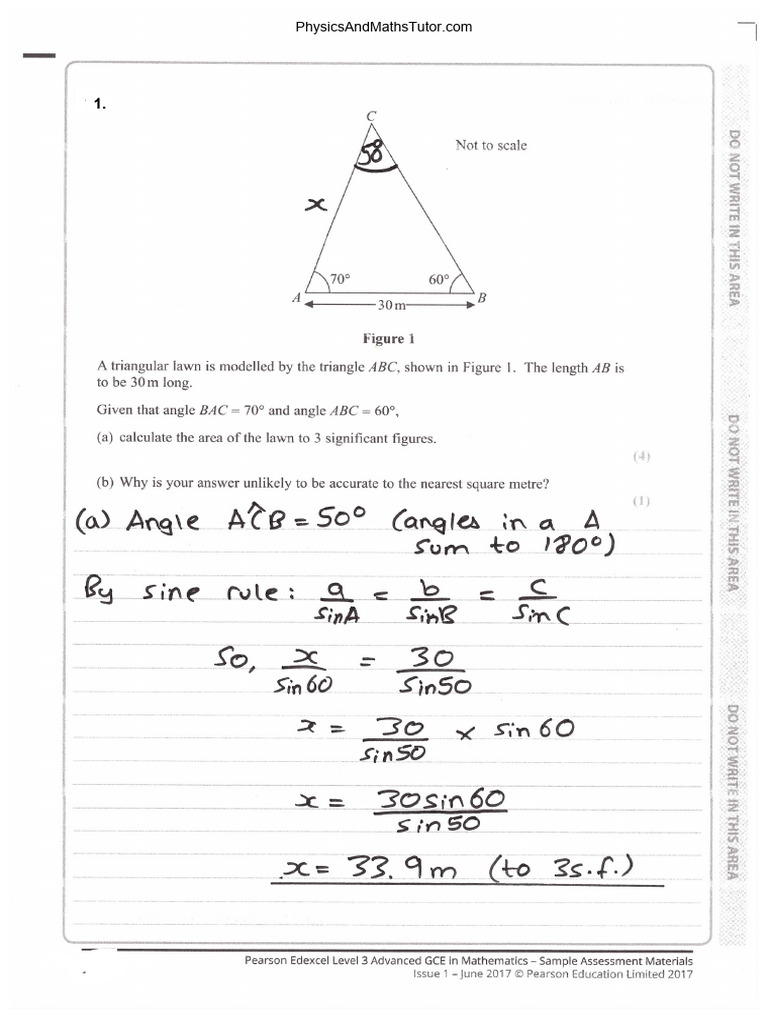 PhysicsAndMathsTutor.com
1.
C
Not to scale
58
x
70°
60°
A
B
30 m
Figure 1
A triangular lawn is modelled by the triangle ABC, shown in Figure 1. The length AB is
to be 30 m long.
Given that angle BAC = 70° and angle ABC = 60°,
(a) calculate the area of the lawn to 3 significant figures.
(4)
(b) Why is your answer unlikely to be accurate to the nearest square metre?
(1)
(a) Angle AĈB = 50° (angles in a Δ
sum to 180°)
By sine rule: a/sinA = b/sinB = c/sinC
So, x/sin60 = 30/sin50
x = 30/sin50 × sin 60
x = 30sin60/sin50
x = 33.9m (to 3s.f.)
DO NOT WRITE IN THIS AREA
DO NOT WRITE IN THIS AREA
DO NOT WRITE IN THIS AREA
Pearson Edexcel Level 3 Advanced GCE in Mathematics – Sample Assessment Materials
Issue 1 – June 2017 © Pearson Education Limited 2017